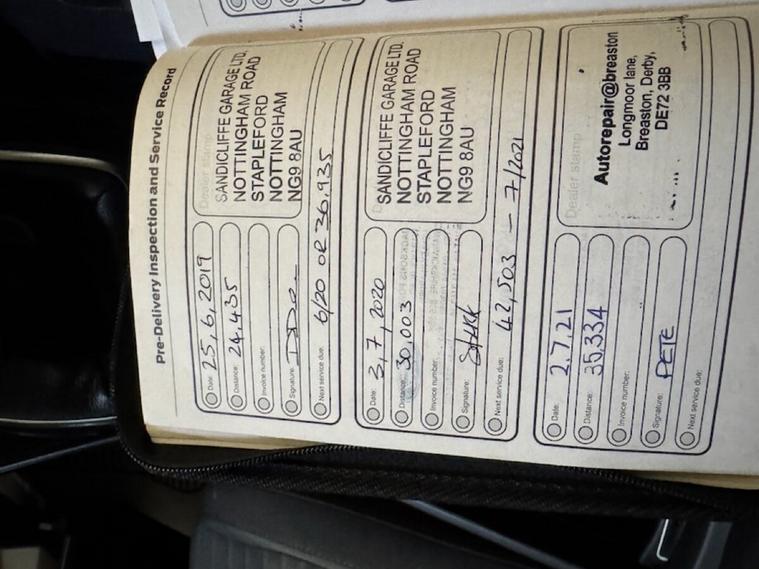 Pre-Delivery Inspection and Service Record
Date: 25,6,2019
Distance: 24.435
Invoice number:
Signature:
Next service due: 6/20 OR 36.935
Dealer stamp
SANDICLIFFE GARAGE LTD.
NOTTINGHAM ROAD
STAPLEFORD
NOTTINGHAM
NG9 8AU
Date: 3,7,2020
Distance: 30.003
Invoice number:
Signature:
Next service due: 42,503 - 7/2021
SANDICLIFFE GARAGE LTD.
NOTTINGHAM ROAD
STAPLEFORD
NOTTINGHAM
NG9 8AU
Date: 2.7.21
Distance: 35,334
Invoice number:
Signature: PETE
Next service due:
Dealer stamp
Autorepair@breaston
Longmoor lane,
Breaston, Derby,
DE72 3BB